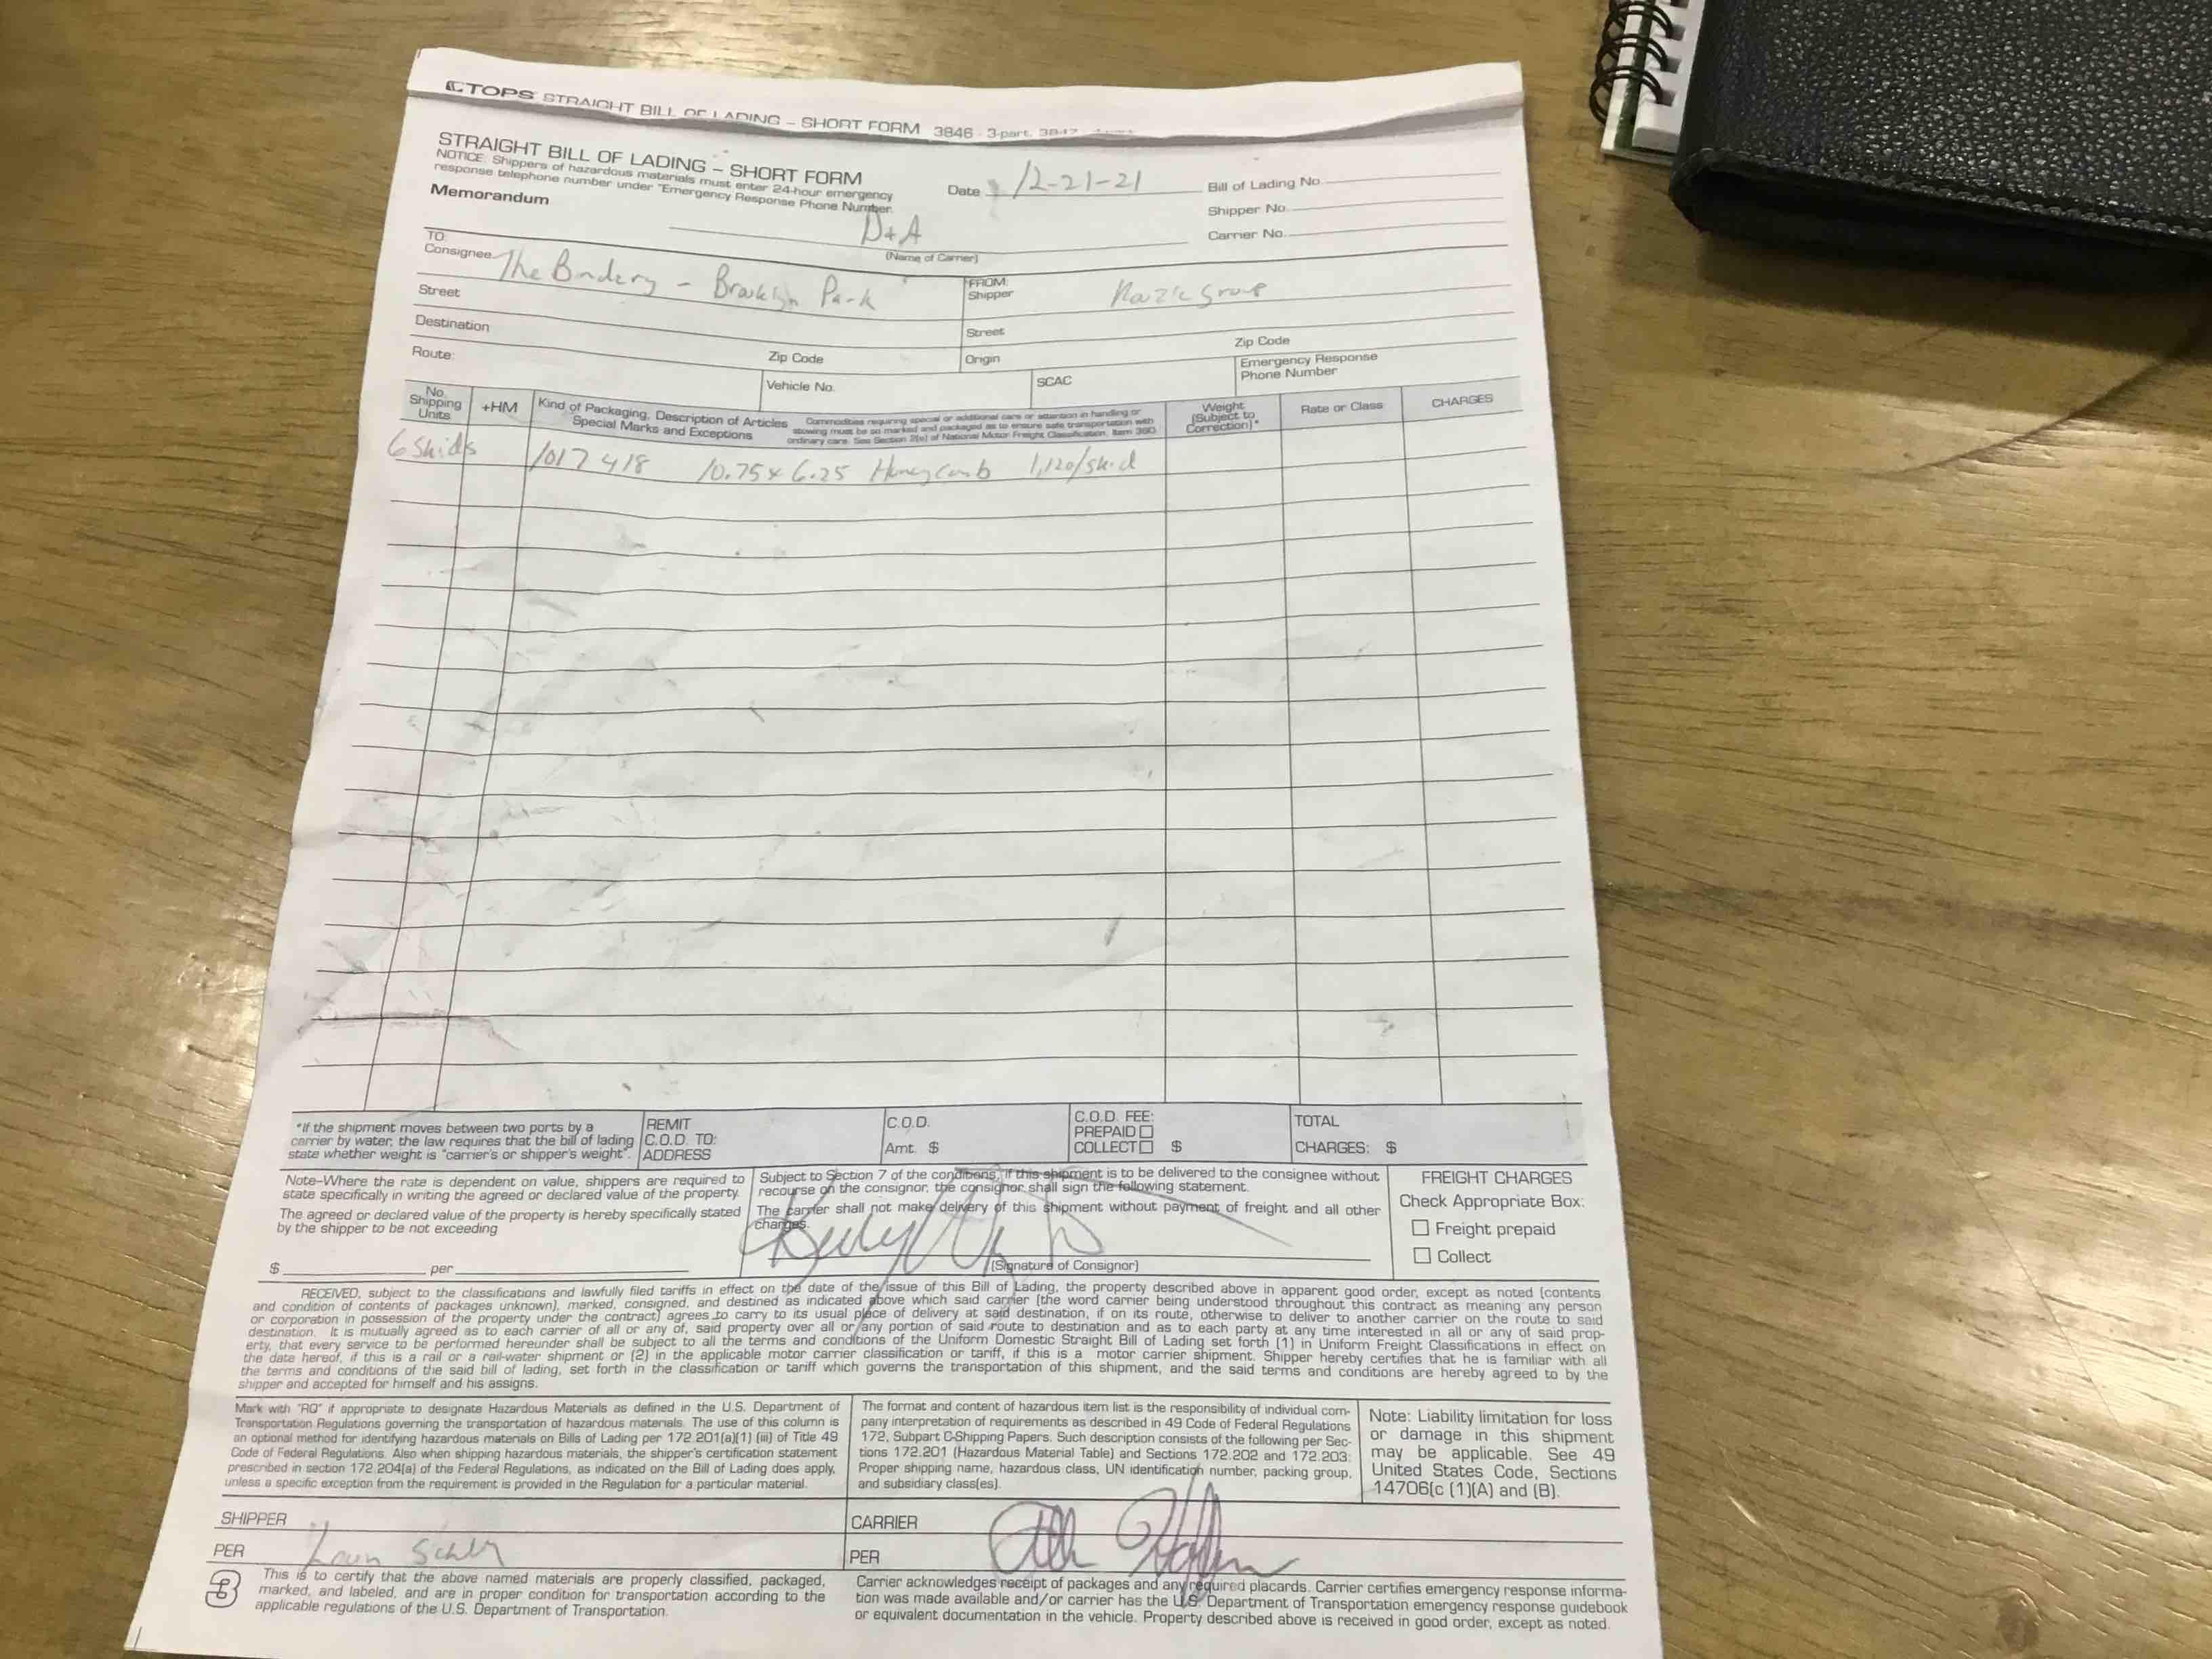 TOPS STRAIGHT BILL OF LADING – SHORT FORM 3846 - 3-part,
STRAIGHT BILL OF LADING – SHORT FORM
NOTICE: Shippers of hazardous materials must enter 24-hour emergency
response telephone number under "Emergency Response Phone Number.
Memorandum
Date 12-21-21
Bill of Lading No.
Shipper No.
Carrier No.
D+A
(Name of Carrier)
TO:
Consignee The Bindery - Brooklyn Park
FROM:
Shipper Group
Street
Street
Destination
Zip Code
Origin
Zip Code
Route:
Vehicle No.
SCAC
Emergency Response
Phone Number
No.
Shipping
Units
+HM
Kind of Packaging, Description of Articles
Special Marks and Exceptions
Commodities requiring special or additional care or attention in handling or
stowing must be so marked and packaged as to ensure safe transportation with
ordinary care. See Section 2(e) of National Motor Freight Classification, Item 360.
Weight
(Subject to
Correction)*
Rate or Class
CHARGES
6 Skids 1017418 10.75 x 6.25 Honeycomb 1,120/skid
*If the shipment moves between two ports by a
carrier by water, the law requires that the bill of lading
state whether weight is "carrier's or shipper's weight".
REMIT
C.O.D. TO:
ADDRESS
C.O.D.
Amt. $
C.O.D. FEE:
PREPAID
COLLECT $
TOTAL
CHARGES: $
Note–Where the rate is dependent on value, shippers are required to
state specifically in writing the agreed or declared value of the property.
The agreed or declared value of the property is hereby specifically stated
by the shipper to be not exceeding
$ per
Subject to Section 7 of the conditions, if this shipment is to be delivered to the consignee without
recourse on the consignor, the consignor shall sign the following statement.
The carrier shall not make delivery of this shipment without payment of freight and all other
charges.
(Signature of Consignor)
FREIGHT CHARGES
Check Appropriate Box:
Freight prepaid
Collect
RECEIVED, subject to the classifications and lawfully filed tariffs in effect on the date of the issue of this Bill of Lading, the property described above in apparent good order, except as noted (contents
and condition of contents of packages unknown), marked, consigned, and destined as indicated above which said carrier (the word carrier being understood throughout this contract as meaning any person
or corporation in possession of the property under the contract) agrees to carry to its usual place of delivery at said destination, if on its route, otherwise to deliver to another carrier on the route to said
destination. It is mutually agreed as to each carrier of all or any of, said property over all or any portion of said route to destination and as to each party at any time interested in all or any of said prop-
erty, that every service to be performed hereunder shall be subject to all the terms and conditions of the Uniform Domestic Straight Bill of Lading set forth (1) in Uniform Freight Classifications in effect on
the date hereof, if this is a rail or a rail-water shipment or (2) in the applicable motor carrier classification or tariff, if this is a motor carrier shipment. Shipper hereby certifies that he is familiar with all
the terms and conditions of the said bill of lading, set forth in the classification or tariff which governs the transportation of this shipment, and the said terms and conditions are hereby agreed to by the
shipper and accepted for himself and his assigns.
Mark with "RQ" if appropriate to designate Hazardous Materials as defined in the U.S. Department of
Transportation Regulations governing the transportation of hazardous materials. The use of this column is
an optional method for identifying hazardous materials on Bills of Lading per 172.201(a)(1) (iii) of Title 49
Code of Federal Regulations. Also when shipping hazardous materials, the shipper's certification statement
prescribed in section 172.204(a) of the Federal Regulations, as indicated on the Bill of Lading does apply,
unless a specific exception from the requirement is provided in the Regulation for a particular material.
The format and content of hazardous item list is the responsibility of individual com-
pany interpretation of requirements as described in 49 Code of Federal Regulations
172, Subpart C-Shipping Papers. Such description consists of the following per Sec-
tions 172.201 (Hazardous Material Table) and Sections 172.202 and 172.203:
Proper shipping name, hazardous class, UN identification number, packing group,
and subsidiary class(es).
Note: Liability limitation for loss
or damage in this shipment
may be applicable. See 49
United States Code, Sections
14706(c (1)(A) and (B).
SHIPPER
CARRIER
PER
PER
3
This is to certify that the above named materials are properly classified, packaged,
marked, and labeled, and are in proper condition for transportation according to the
applicable regulations of the U.S. Department of Transportation.
Carrier acknowledges receipt of packages and any required placards. Carrier certifies emergency response informa-
tion was made available and/or carrier has the U.S. Department of Transportation emergency response guidebook
or equivalent documentation in the vehicle. Property described above is received in good order, except as noted.